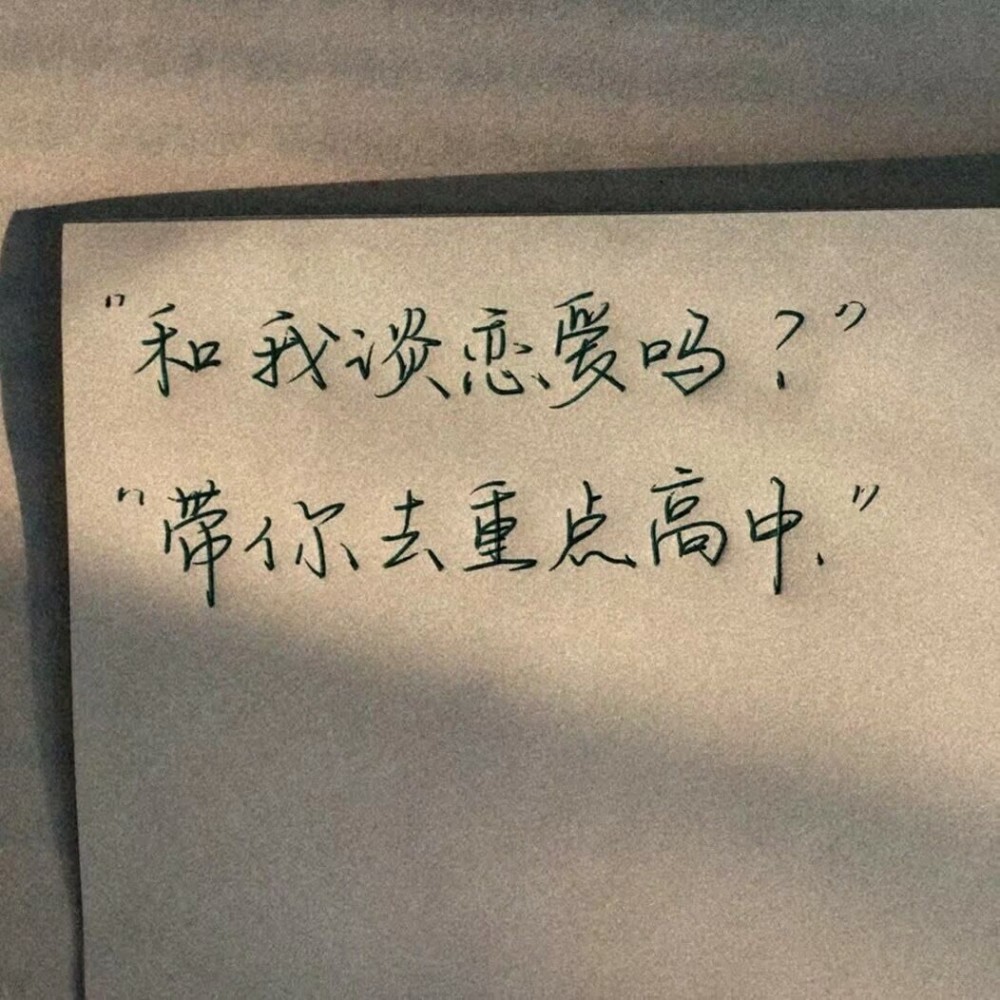 "和我谈恋爱吗?"
"带你去重点高中."